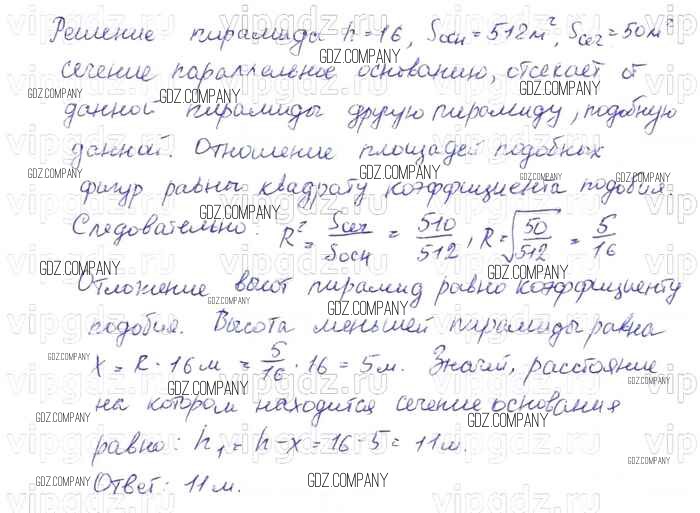 Решение пирамида h=16, Sосн=512м², Sсег=50м²
сечение параллельное основанию, отсекает от
данной пирамиды другую пирамиду, подобную
данной. Отношение площадей подобных
фигур равны квадрату коэффициента подобия.
Следовательно: R² = Sсег/Sосн = 510/512, R = √50/512 = 5/16
Отложение высот пирамид равно коэффициенту
подобия. Высота меньшей пирамиды равна
x = R · 16м = 5/16 · 16 = 5м. Значит, расстояние
на котором находится сечение основания
равно: h₁ = h-x = 16-5 = 11м.
Ответ: 11м.
GDZ.COMPANY
vipgdz.ru